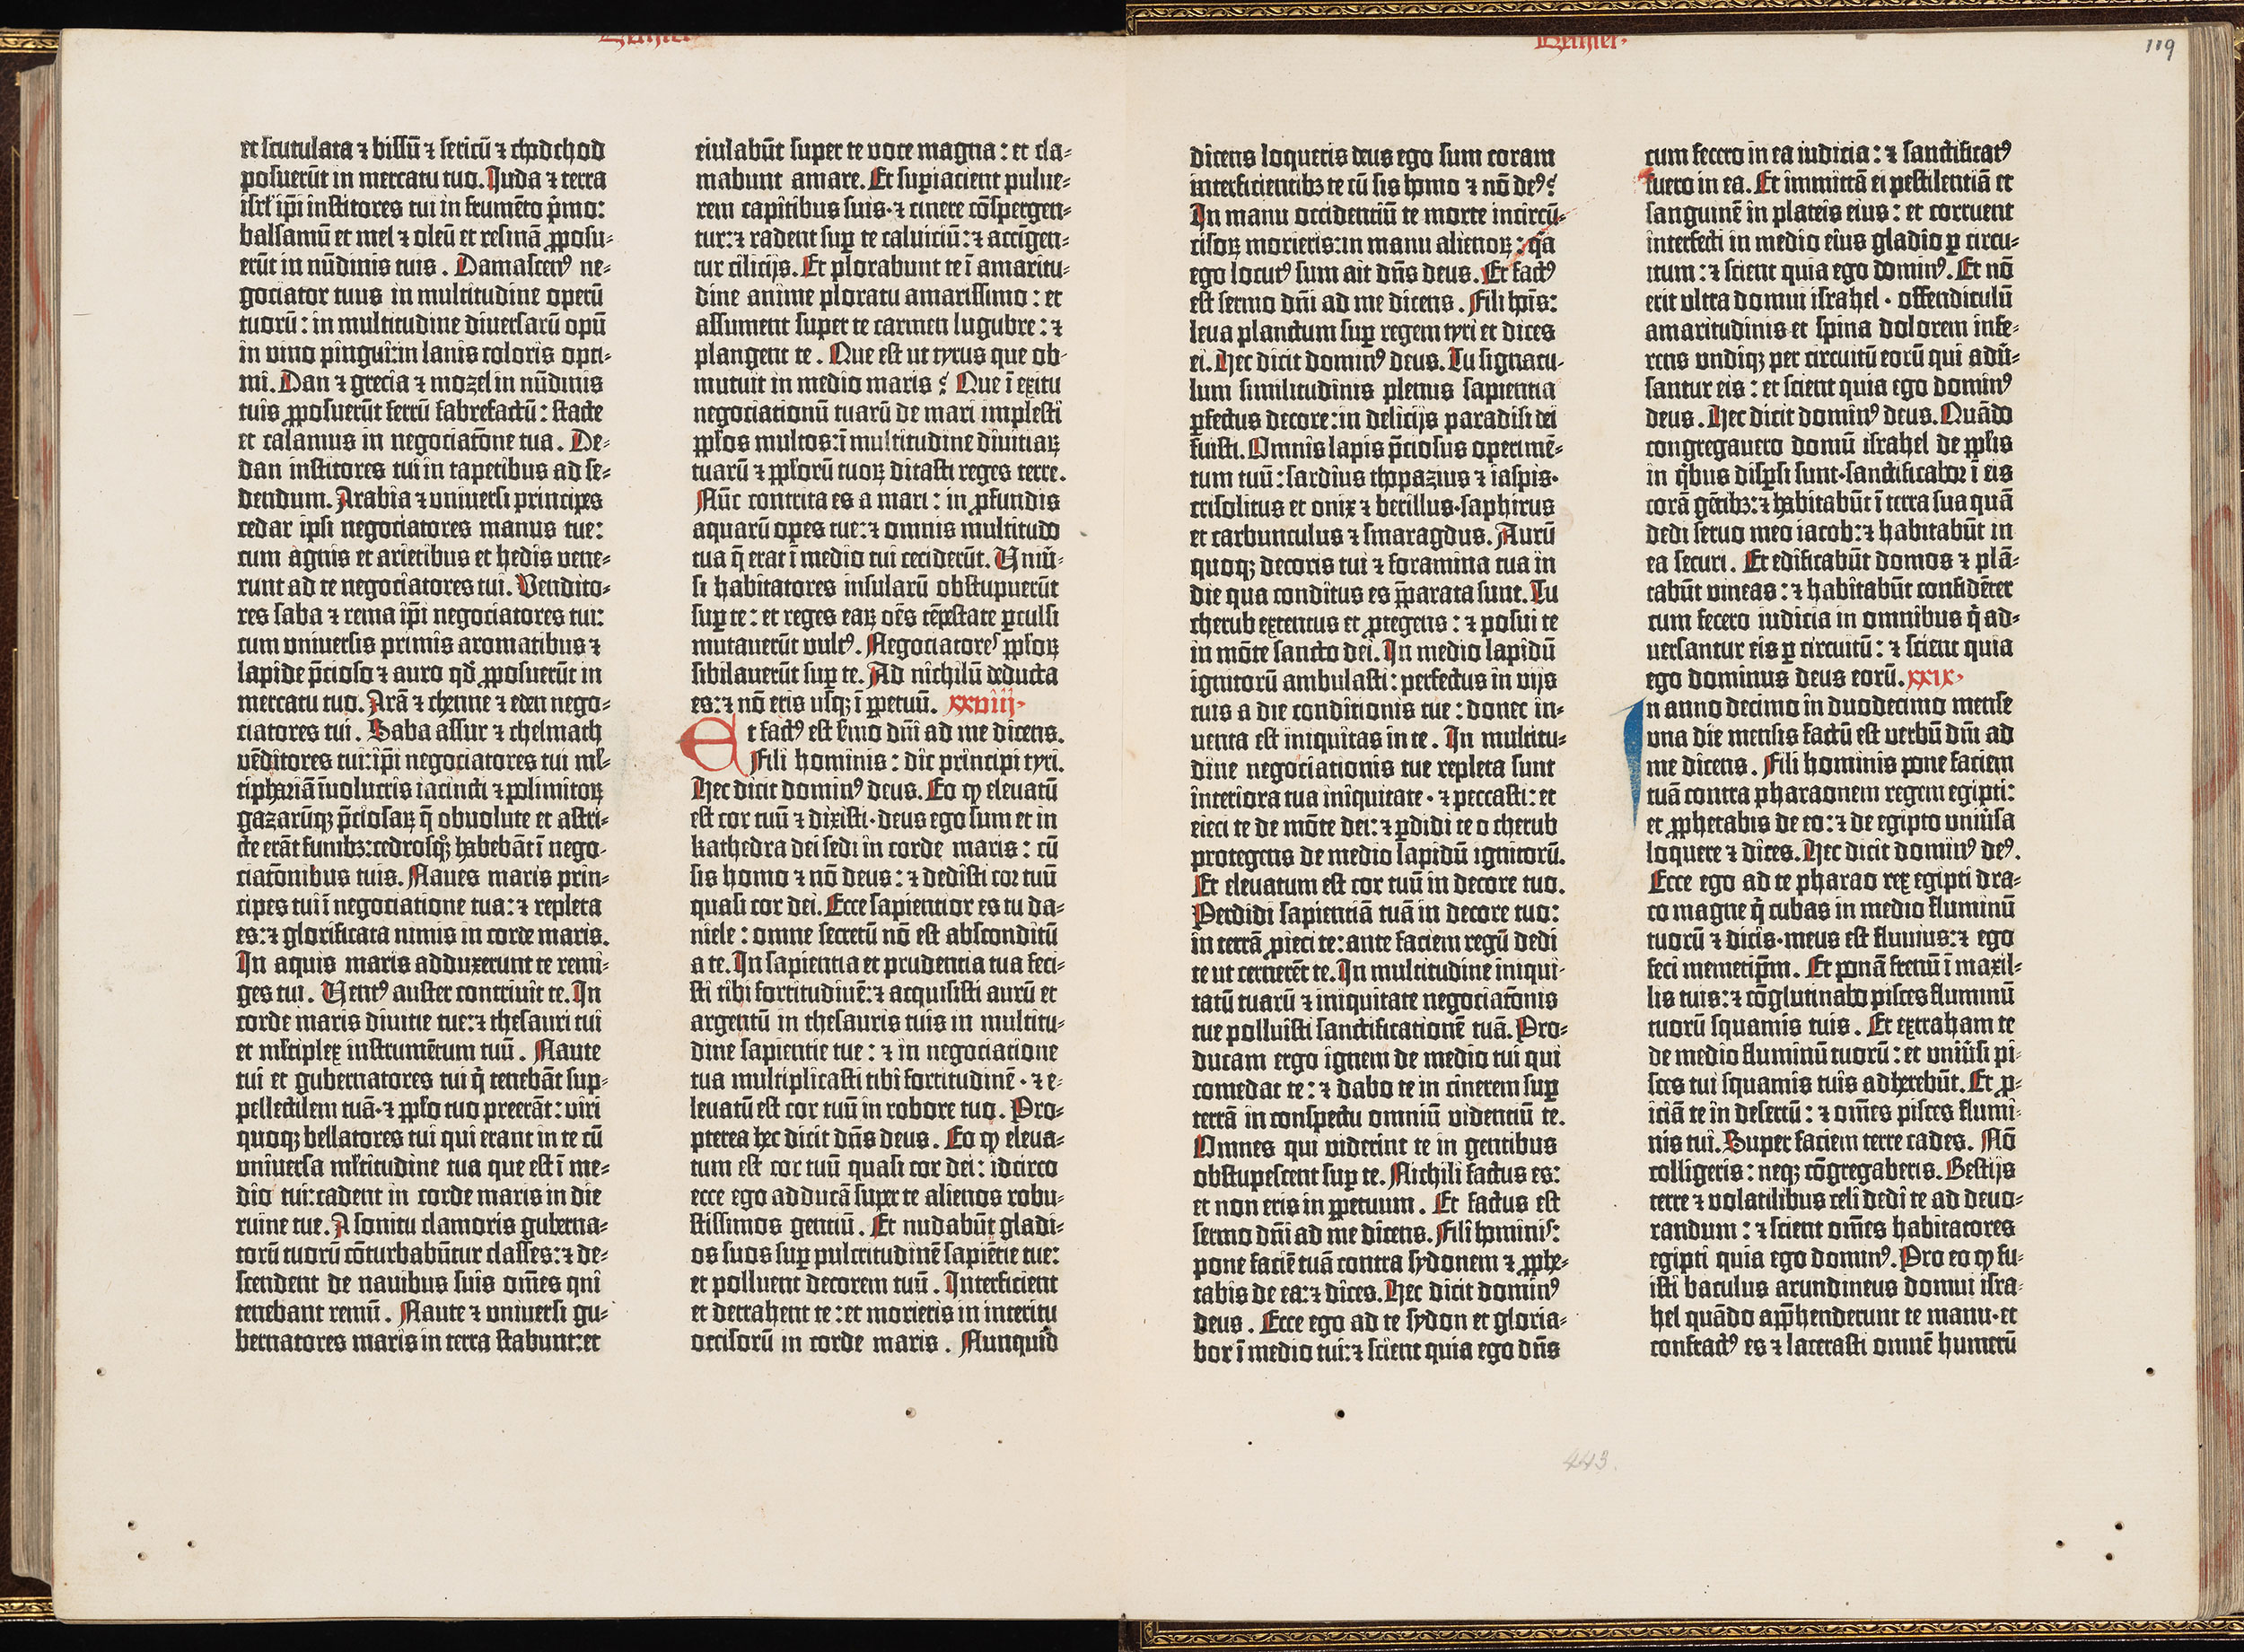 119
et scutulata ⁊ bissū ⁊ sericū ⁊ chodchod
posuerūt in mercatu tuo. Juda ⁊ terra
isrl' ip̄i institores tui in frumēto p̄mo:
balsamū et mel ⁊ oleū et resinā ꝓposu-
erūt in nūdinis tuis. Damascenꝰ ne-
gociator tuus in multitudine operū
tuorū: in multitudine diuersarū opū
in vino pingui: in lanis coloris opti-
mi. Dan ⁊ grecia ⁊ mozel in nūdinis
tuis ꝓposuerūt ferrū fabrefactū: stacte
et calamus in negociatōne tua. De-
dan institores tui in tapetibus ad se-
dendum. Arabia ⁊ uniuersi principes
cedar ipsi negociatores manus tue:
cum agnis et arietibus et hedis vene-
runt ad te negociatores tui. Vendito-
res saba ⁊ rema ip̄i negociatores tui:
cum vniuersis primis aromatibus ⁊
lapide p̄cioso ⁊ auro qđ ꝓposuerūt in
mercatu tuo. Arā ⁊ chenne ⁊ eden nego-
ciatores tui. Saba assur ⁊ chelmath
vēditores tui: ip̄i negociatores tui ml'-
tiphariā īuolucris iacincti ⁊ polimitoꝝ
gazarūqꝫ p̄ciosaꝝ q̄ obuolute et astri-
cte erāt funibꝫ: cedrosqꝫ habebāt ī nego-
ciatōnibus tuis. Naues maris prin-
cipes tui ī negociatione tua: ⁊ repleta
es: ⁊ glorificata nimis in corde maris.
In aquis maris adduxerunt te remi-
ges tui. Uentꝰ auster contriuit te. In
corde maris diuitie tue: ⁊ thesauri tui
et ml'tiplex instrumētum tuū. Naute
tui et gubernatores tui q̄ tenebāt sup-
pellectilem tuā· ⁊ ppl'o tuo preerāt: viri
quoqꝫ bellatores tui qui erant in te cū
vniuersa ml'titudine tua que est ī me-
dio tui: cadent in corde maris in die
ruine tue. A sonitu clamoris guberna-
torū tuorū cōturbabūtur classes: ⁊ de-
scendent de nauibus suis om̄es qui
tenebant remū. Naute ⁊ vniuersi gu-
bernatores maris in terra stabunt: et
eiulabūt super te voce magna: et cla-
mabunt amare. Et supiacient pulue-
rem capitibus suis· ⁊ cinere cōspergen-
tur: ⁊ radent suꝑ te caluiciū: ⁊ accīgen-
tur cilicijs. Et plorabunt te ī amaritu-
dine anime ploratu amarissimo: et
assument super te carmen lugubre: ⁊
plangent te. Que est ut tyrus que ob-
mutuit in medio maris? Que ī exitu
negociationū tuarū de mari implesti
ppl'os multos: ī multitudine diuitiaꝝ
tuarū ⁊ ppl'orū tuoꝝ ditasti reges terre.
Nūc contrita es a mari: in ꝓfundis
aquarū opes tue: ⁊ omnis multitudo
tua q̄ erat ī medio tui ceciderūt. Uniū-
si habitatores insularū obstupuerūt
suꝑ te: et reges eaꝝ oēs tēpestate ꝑculsi
mutauerūt vultꝰ. Negociatores ppl'oꝝ
sibilauerūt suꝑ te. Ad nichilū deducta
es: ⁊ nō eris usqꝫ ī ꝑpetuū. xxviij·
Et factꝰ est sermo dn̄i ad me dicens.
Fili hominis: dic principi tyri.
Hec dicit dominꝰ deus. Eo ꝙ eleuatū
est cor tuū ⁊ dixisti· deus ego sum et in
kathedra dei sedi in corde maris: cū
sis homo ⁊ nō deus: ⁊ dedisti cor tuū
quasi cor dei. Ecce sapientior es tu da-
niele: omne secretū nō est absconditū
a te. In sapientia et prudentia tua feci-
sti tibi fortitudinē: ⁊ acquisisti aurū et
argentū in thesauris tuis in multitu-
dine sapientie tue: ⁊ in negociatione
tua multiplicasti tibi fortitudinē· ⁊ e-
leuatū est cor tuū in robore tuo. Pro-
pterea hec dicit dn̄s deus. Eo ꝙ eleua-
tum est cor tuū quasi cor dei: idcirco
ecce ego adducā super te alienos robu-
stissimos gentiū. Et nudabūt gladi-
os suos suꝑ pulcritudinē sapiētie tue:
et polluent decorem tuū. Interficient
et detrahent te: et morieris in interitu
occisorū in corde maris. Nunquid
dicens loqueris deus ego sum coram
interficientibꝫ te cū sis homo ⁊ nō deꝰ?
In manu occidentiū te morte incircū-
cisoꝝ morieris: in manu alienoꝝ: q̄a
ego locutꝰ sum ait dn̄s deus. Et factꝰ
est sermo dn̄i ad me dicens. Fili hoīs:
leua planctum suꝑ regem tyri et dices
ei. Hec dicit dominꝰ deus. Tu signacu-
lum similitudinis plenus sapientia
ꝑfectus decore: in delicijs paradisi dei
fuisti. Omnis lapis p̄ciosus operimē-
tum tuū: sardius thopazius ⁊ iaspis·
crisolitus et onix ⁊ berillus· saphirus
et carbunculus ⁊ smaragdus. Aurū
quoqꝫ decoris tui ⁊ foramina tua in
die qua conditus es p̄parata sunt. Tu
cherub extentus et ꝓtegens: ⁊ posui te
in mōte sancto dei. In medio lapidū
ignitorū ambulasti: perfectus in vijs
tuis a die conditionis tue: donec in-
uenta est iniquitas in te. In multitu-
dine negociationis tue repleta sunt
interiora tua iniquitate· ⁊ peccasti: et
eieci te de mōte dei: ⁊ ꝑdidi te o cherub
protegens de medio lapidū ignitorū.
Et eleuatum est cor tuū in decore tuo.
Perdidi sapientiā tuā in decore tuo:
in terrā ꝓieci te: ante faciem regū dedi
te ut cernerēt te. In multitudine iniqui-
tatū tuarū ⁊ iniquitate negociatōnis
tue polluisti sanctificationē tuā. Pro-
ducam ergo ignem de medio tui qui
comedat te: ⁊ dabo te in cinerem suꝑ
terrā in conspectu omniū videntiū te.
Omnes qui viderint te in gentibus
obstupescent suꝑ te. Nichili factus es:
et non eris in ꝑpetuum. Et factus est
sermo dn̄i ad me dicens. Fili hominis:
pone faciē tuā contra sydonem ⁊ ꝓphe-
tabis de ea: ⁊ dices. Hec dicit dominꝰ
deus. Ecce ego ad te sydon et gloria-
bor ī medio tui: ⁊ scient quia ego dn̄s
cum fecero in ea iudicia: ⁊ sanctificatꝰ
fuero in ea. Et immittā ei pestilentiā et
sanguinē in plateis eius: et corruent
interfecti in medio eius gladio ꝑ circu-
itum: ⁊ scient quia ego dominꝰ. Et nō
erit vltra domui israhel· offendiculū
amaritudinis et spina dolorem infe-
rens vndiqꝫ per circuitū eorū qui adū-
santur eis: et scient quia ego dominꝰ
deus. Hec dicit dominꝰ deus. Quādo
congregauero domū israhel de ppl'is
in q̄bus disꝑsi sunt· sanctificabor ī eis
corā gētibꝫ: ⁊ habitabūt ī terra sua quā
dedi seruo meo iacob: ⁊ habitabūt in
ea securi. Et edificabūt domos ⁊ plā-
tabūt vineas: ⁊ habitabūt confidēter
cum fecero iudicia in omnibus q̄ ad-
uersantur eis ꝑ circuitū: ⁊ scient quia
ego dominus deus eorū. xxix·
In anno decimo in duodecimo mense
vna die mensis factū est verbū dn̄i ad
me dicens. Fili hominis pone faciem
tuā contra pharaonem regem egipti:
et ꝓphetabis de eo: ⁊ de egipto vniūsa
loquere ⁊ dices. Hec dicit dominꝰ deꝰ.
Ecce ego ad te pharao rex egipti dra-
co magne q̄ cubas in medio fluminū
tuorū ⁊ dicis· meus est fluuius: ⁊ ego
feci memetip̄m. Et ponā frenū ī maxil-
lis tuis: ⁊ cōglutinabo pisces fluminū
tuorū squamis tuis. Et extraham te
de medio fluminū tuorū: et vniūsi pi-
sces tui squamis tuis adherebūt. Et ꝓ-
iciā te in desertū: ⁊ om̄es pisces flumi-
nis tui. Super faciem terre cades. Nō
colligeris: neqꝫ cōgregaberis. Bestijs
terre ⁊ volatilibus celi dedi te ad deuo-
randum: ⁊ scient om̄es habitatores
egipti quia ego dominꝰ. Pro eo ꝙ fu-
isti baculus arundineus domui isra-
hel quādo app̄henderunt te manu· et
confractꝰ es ⁊ lacerasti omnē humerū
443.